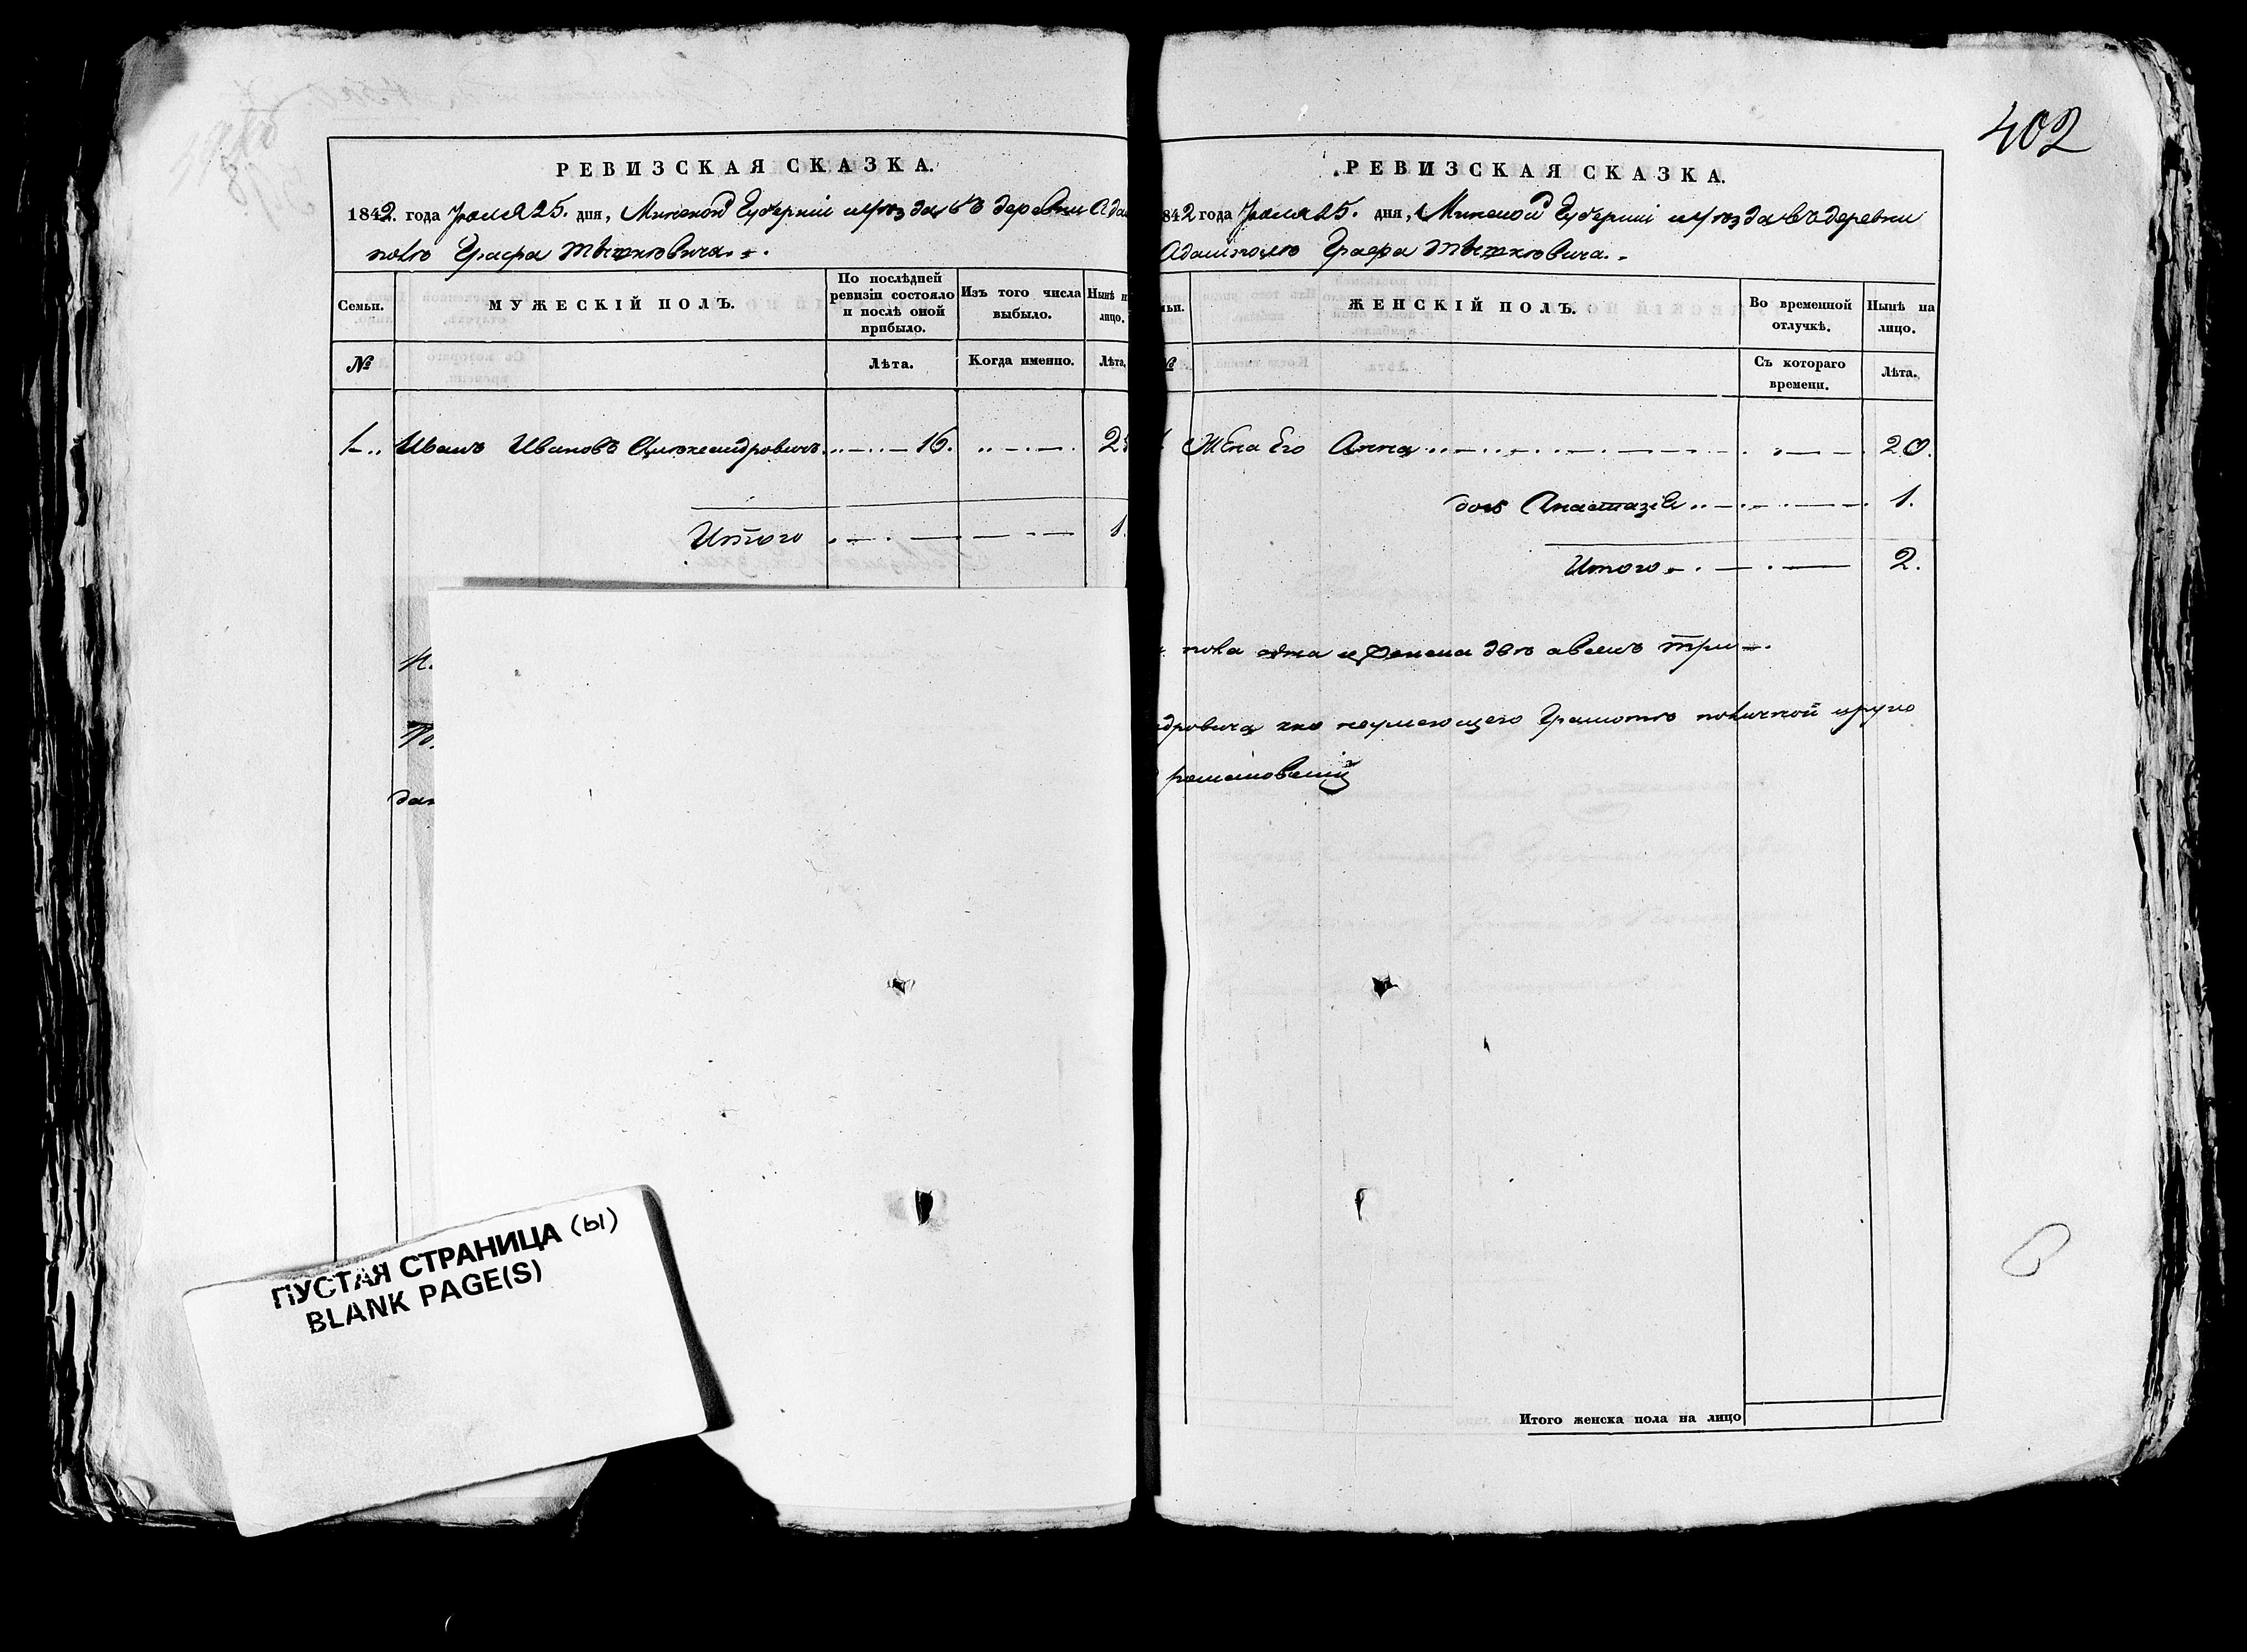 402
РЕВИЗСКАЯ СКАЗКА.
1842. года Іюля 25. дня, Минской Губерніи и уѣзда въ деревни Адам
полю Графа Тышкѣвича.
Семьи.
МУЖЕСКІЙ ПОЛЪ.
По послѣдней ревизіи состояло и послѣ оной прибыло.
Изъ того числа выбыло.
Нынѣ н лицо.
№
Лѣта.
Когда именно.
Лѣта,
1 Иванъ Ивановъ 16. 2
Итого 1.
дан
РЕВИЗСКАЯ СКАЗКА.
842 года Іюля 25. дня, Минской Губерніи и уѣзда въ деревни
Адамполю Графа Тышкѣвича.
ьи.
ЖЕНСКІЙ ПОЛЪ.
Во временной отлучкѣ.
Нынѣ на лицо.
Съ котораго времени.
Лѣта.
Жена Его Анна 20.
дочь Анастазія 1.
Итого 2.
пола одна и женска двѣ а всѣхъ три
дровича яко неумеющего Грамотѣ поличной
Итого женска пола на лицо
ПУСТАЯ СТРАНИЦА (Ы)
BLANK PAGE(S)